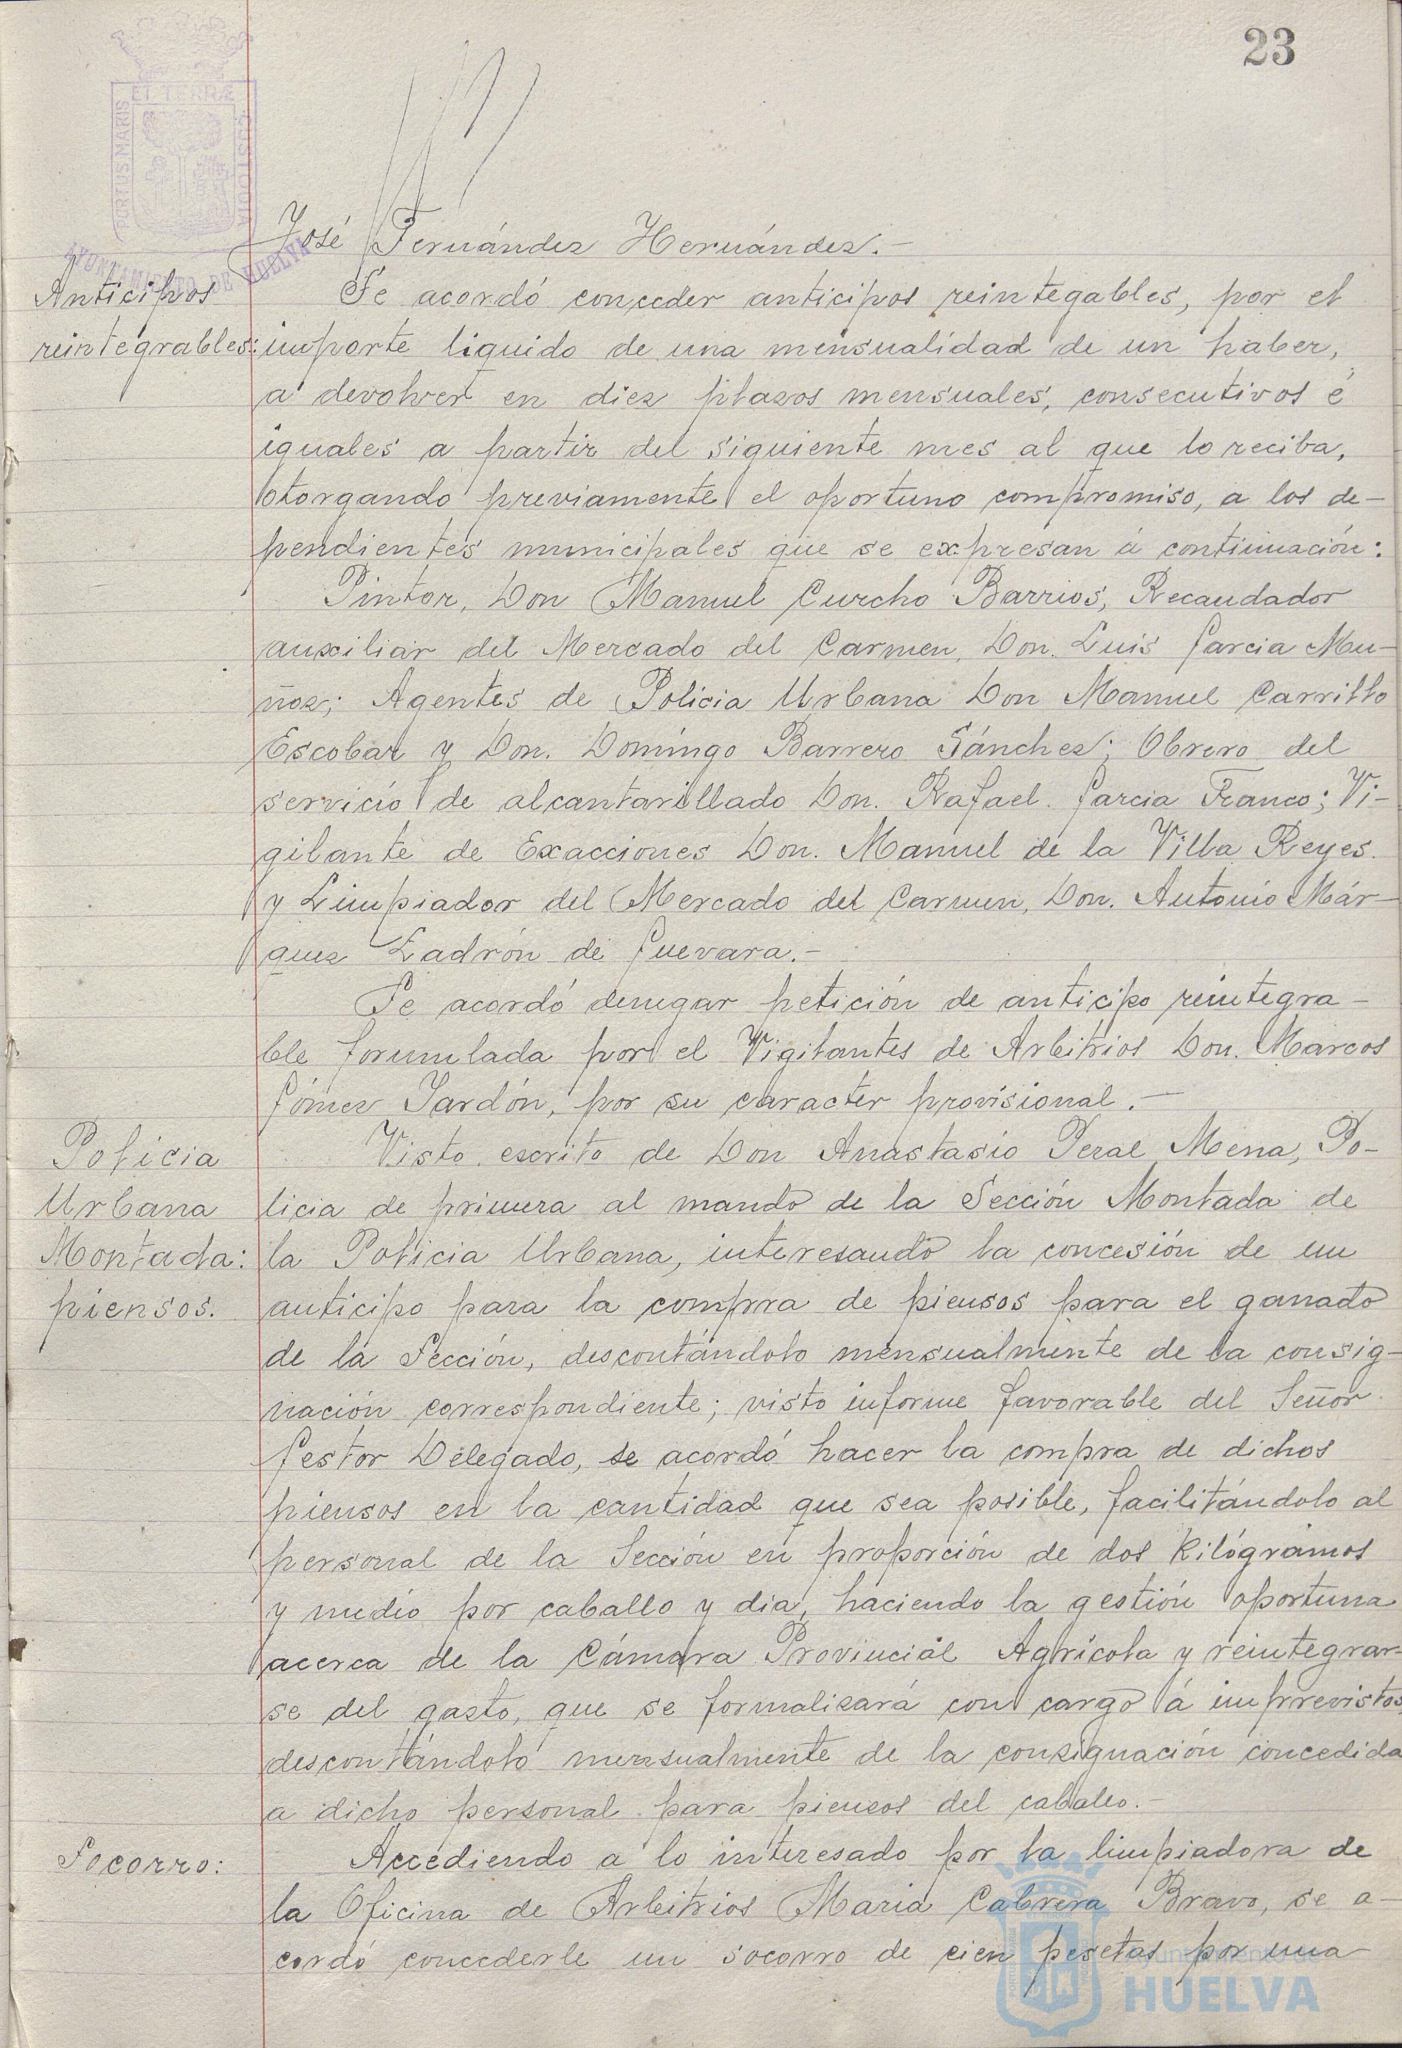 23
PORTUS MARIS ET TERRÆ CUSTODIA
AYUNTAMIENTO DE HUELVA
José Fernández Hernández.-
Anticipos
reintegrables:
Se acordó conceder anticipos reintegables, por el
importe liquido de una mensualidad de un haber,
a devolver en diez plazos mensuales, consecutivos é
iguales a partir del siguiente mes al que lo reciba,
otorgando previamente el oportuno compromiso, a los de-
pendientes municipales que se expresan á continuación:
Pintor, Don Manuel Curcho Barrios, Recaudador
auxiliar del Mercado del Carmen, Don. Luis Garcia Mu-
ñoz; Agentes de Policia Urbana Don Manuel Carrillo
Escobar y Don. Domíngo Barrero Sánchez; Obrero del
servicio de alcantarillado Don. Rafael Garcia Franco; Vi-
gilante de Exacciones Don. Manuel de la Villa Reyes.
y Limpiador del Mercado del Carmen, Don. Antonio Már-
quez Ladrón de Guevara.-
Se acordó denegar petición de anticipo reintegra-
ble formulada por el Vigilantes de Arbitrios Don. Marcos
Gómez Jardón, por su caracter provisional.-
Policia
Urbana
Montada:
piensos.
Visto escrito de Don Anastasio Peral Mena, Po-
licia de primera al mando de la Sección Montada de
la Policia Urbana, interesando la concesión de un
anticipo para la compra de piensos para el ganado
de la Sección, descontándolo mensualmente de la consig-
nación correspondiente; visto informe favorable del Señor
Gestor Delegado, se acordó hacer la compra de dichos
piensos en la cantidad que sea posible, facilitándolo al
personal de la Sección en proporción de dos Kilógramos
y medio por caballo y dia, haciendo la gestión oportuna
acerca de la Cámara Provincial Agrícola y reintegrar-
se del gasto, que se formalizará con cargo á imprevistos,
descontándolo mensualmente de la consignación concedida
a dicho personal para piensos del caballo.-
Socorro:
Accediendo a lo interesado por la limpiadora de
la Oficina de Arbitrios Maria Cabrera Bravo, se a-
cordó concederle un socorro de cien pesetas por una
Ayuntamiento de
HUELVA